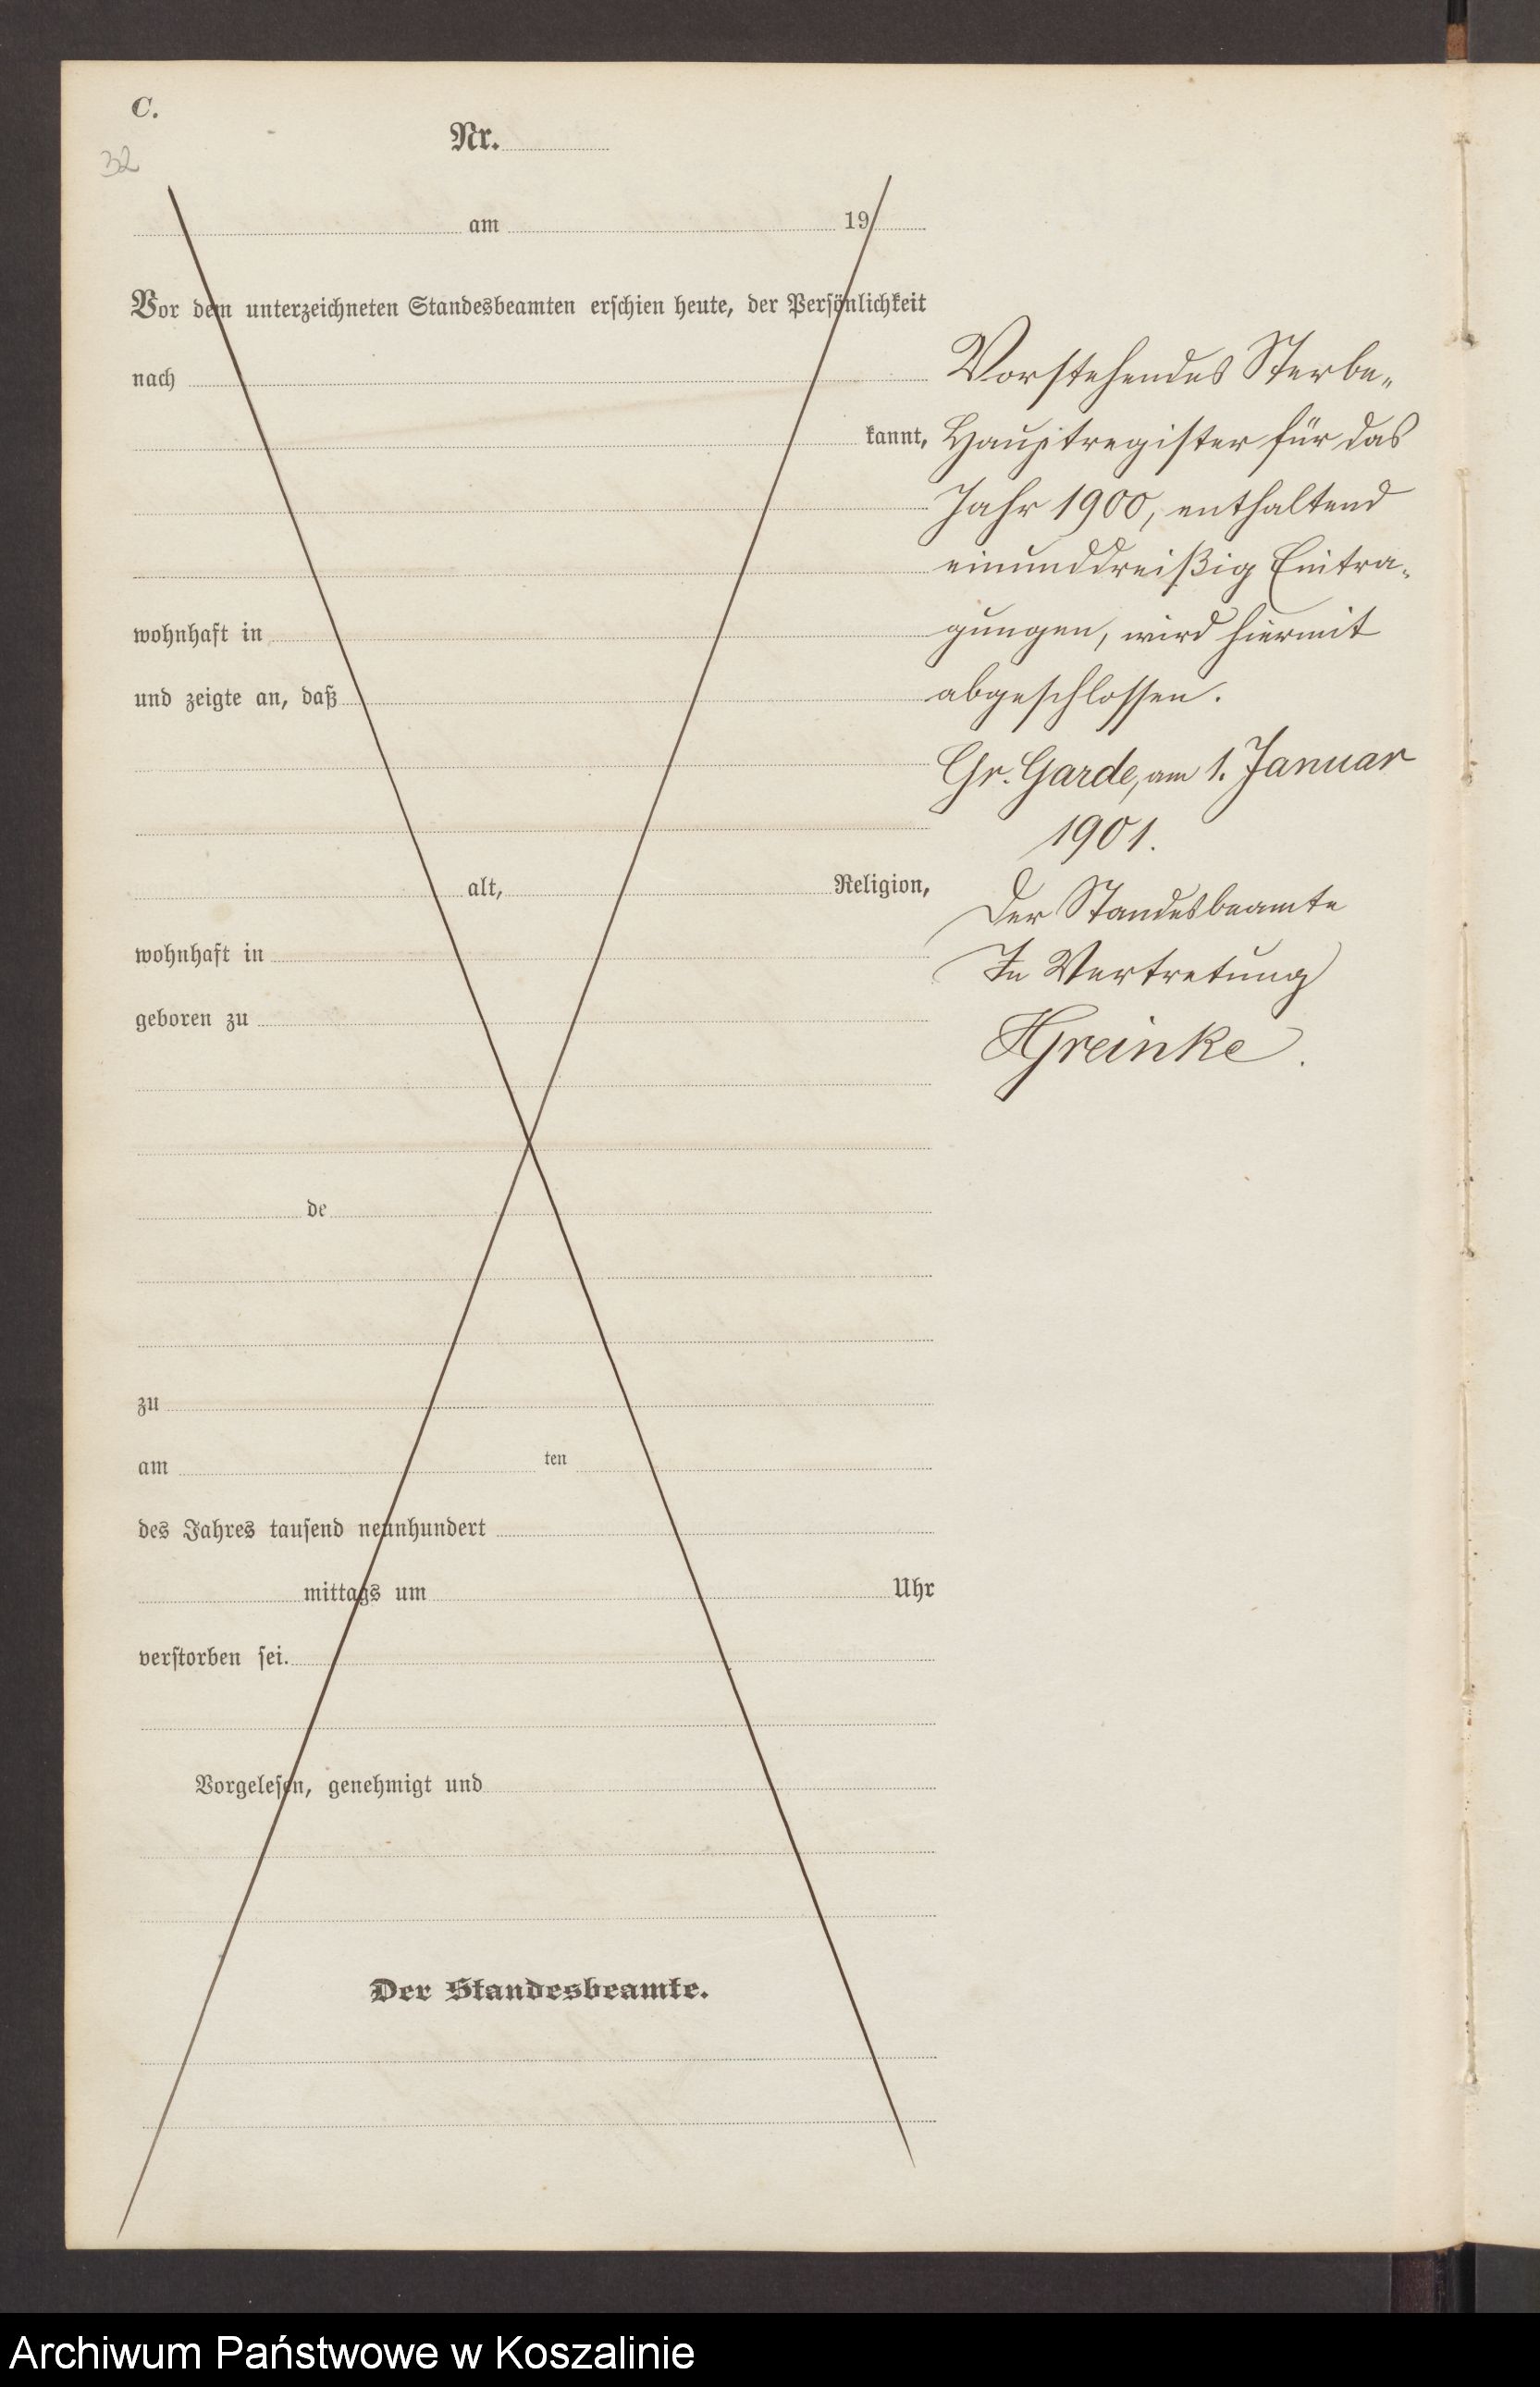 C.
32
Nr.
am 19
Vor dem unterzeichneten Standesbeamten erschien heute, der Persönlichkeit
nach
kannt,
wohnhaft in
und zeigte an, daß
alt, Religion,
wohnhaft in
geboren zu
de
zu
am ten
des Jahres tausend neunhundert
mittags um Uhr
verstorben sei.
Vorgelesen, genehmigt und
Der Standesbeamte.
Vorstehendes Sterbe-
Hauptregister für das
Jahr 1900, enthaltend
einunddreißig Eintra-
gungen, wird hiermit
abgeschlossen.
Gr. Garde, am 1. Januar
1901.
Der Standesbeamte
In Vertretung
HGreinke.
Archiwum Państwowe w Koszalinie